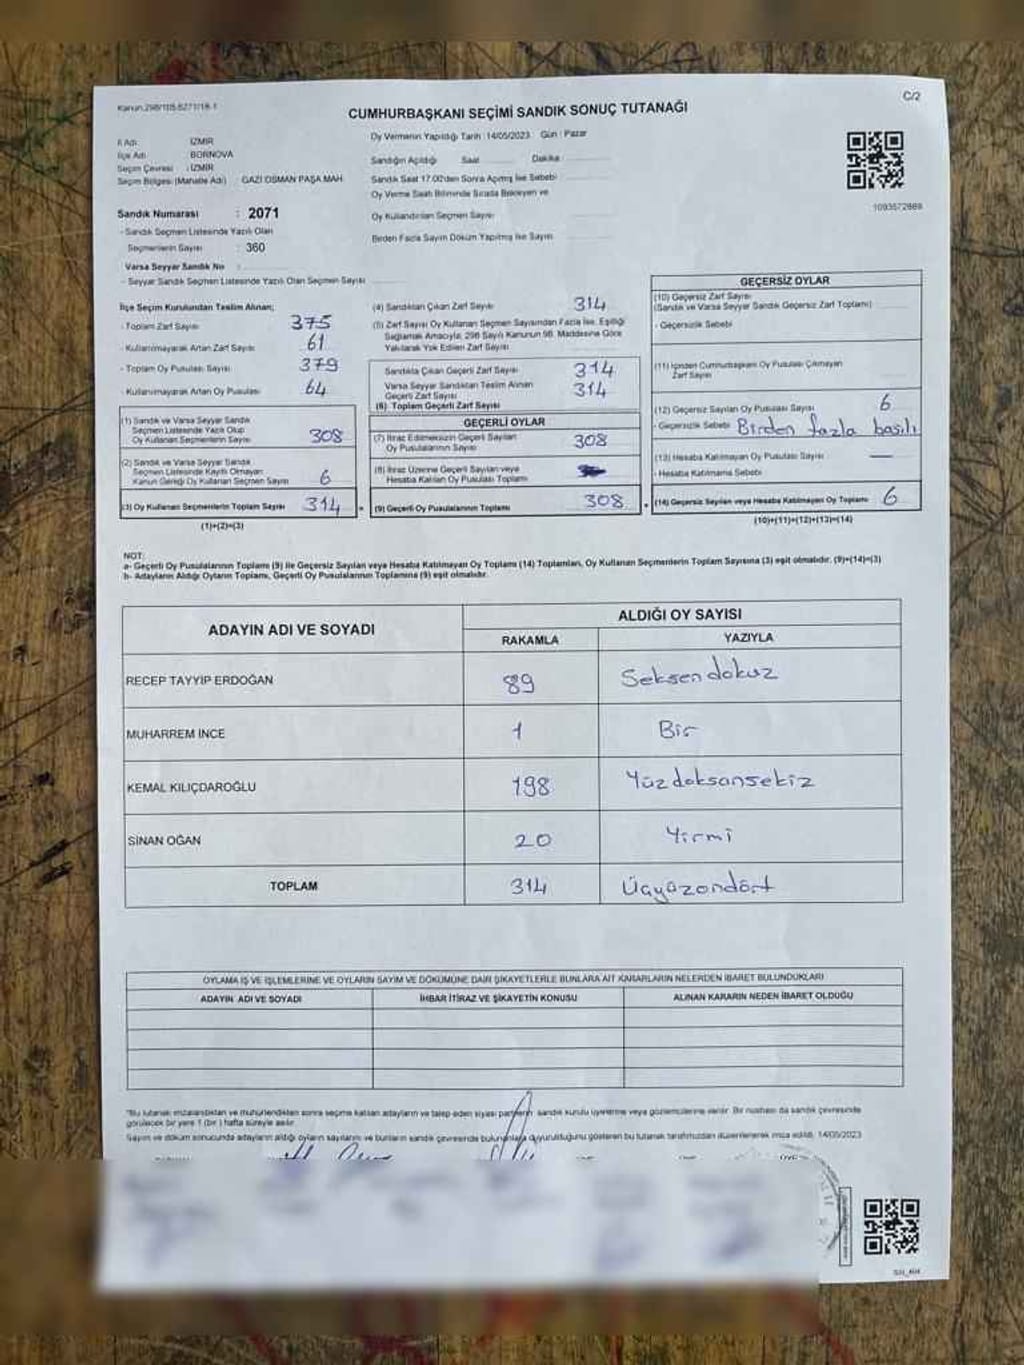 Kanun.298/105.6271/18-1
C/2
CUMHURBAŞKANI SEÇİMİ SANDIK SONUÇ TUTANAĞI
İl Adı İZMİR
İlçe Adı BORNOVA
Seçim Çevresi : İZMİR
Seçim Bölgesi (Mahalle Adı) GAZİ OSMAN PAŞA MAH.
Sandık Numarası : 2071
- Sandık Seçmen Listesinde Yazılı Olan
Seçmenlerin Sayısı : 360
Varsa Seyyar Sandık No :
- Seyyar Sandık Seçmen Listesinde Yazılı Olan Seçmen Sayısı
Oy Vermenin Yapıldığı Tarih :14/05/2023 Gün : Pazar
Sandığın Açıldığı Saat Dakika
Sandık Saat 17.00'den Sonra Açılmış İse Sebebi
Oy Verme Saati Bitiminde Sırada Bekleyen ve
Oy Kullandırılan Seçmen Sayısı
Birden Fazla Sayım Döküm Yapılmış İse Sayısı
1093572869
İlçe Seçim Kurulundan Teslim Alınan;
- Toplam Zarf Sayısı 375
- Kullanılmayarak Artan Zarf Sayısı 61
- Toplam Oy Pusulası Sayısı 379
- Kullanılmayarak Artan Oy Pusulası 64
(1) Sandık ve Varsa Seyyar Sandık
Seçmen Listesinde Yazılı Olup
Oy Kullanan Seçmenlerin Sayısı 308
(2) Sandık ve Varsa Seyyar Sandık
Seçmen Listesinde Kayıtlı Olmayan
Kanun Gereği Oy Kullanan Seçmen Sayısı 6
(3) Oy Kullanan Seçmenlerin Toplam Sayısı 314
(1)+(2)=(3)
(4) Sandıktan Çıkan Zarf Sayısı 314
(5) Zarf Sayısı Oy Kullanan Seçmen Sayısından Fazla İse, Eşitliği
Sağlamak Amacıyla, 298 Sayılı Kanunun 98. Maddesine Göre
Yakılarak Yok Edilen Zarf Sayısı
Sandıkta Çıkan Geçerli Zarf Sayısı 314
Varsa Seyyar Sandıktan Teslim Alınan
Geçerli Zarf Sayısı 314
(6) Toplam Geçerli Zarf Sayısı
GEÇERLİ OYLAR
(7) İtiraz Edilmeksizin Geçerli Sayılan
Oy Pusulalarının Sayısı 308
(8) İtiraz Üzerine Geçerli Sayılan veya
Hesaba Katılan Oy Pusulası Toplamı
(9) Geçerli Oy Pusulalarının Toplamı 308
GEÇERSİZ OYLAR
(10) Geçersiz Zarf Sayısı
(Sandık ve Varsa Seyyar Sandık Geçersiz Zarf Toplamı)
- Geçersizlik Sebebi
(11) İçinden Cumhurbaşkanı Oy Pusulası Çıkmayan
Zarf Sayısı
(12) Geçersiz Sayılan Oy Pusulası Sayısı 6
- Geçersizlik Sebebi Birden fazla basılı
(13) Hesaba Katılmayan Oy Pusulası Sayısı —
- Hesaba Katılmama Sebebi
(14) Geçersiz Sayılan veya Hesaba Katılmayan Oy Toplamı 6
(10)+(11)+(12)+(13)=(14)
NOT:
a- Geçerli Oy Pusulalarının Toplamı (9) ile Geçersiz Sayılan veya Hesaba Katılmayan Oy Toplamı (14) Toplamları, Oy Kullanan Seçmenlerin Toplam Sayısına (3) eşit olmalıdır. (9)+(14)=(3)
b- Adayların Aldığı Oyların Toplamı, Geçerli Oy Pusulalarının Toplamına (9) eşit olmalıdır.
ADAYIN ADI VE SOYADI
ALDIĞI OY SAYISI
RAKAMLA YAZIYLA
RECEP TAYYİP ERDOĞAN 89 Seksendokuz
MUHARREM İNCE 1 Bir
KEMAL KILIÇDAROĞLU 198 Yüzdoksansekiz
SİNAN OĞAN 20 Yirmi
TOPLAM 314 Üçyüzondört
OYLAMA İŞ VE İŞLEMLERİNE VE OYLARIN SAYIM VE DÖKÜMÜNE DAİR ŞİKAYETLERLE BUNLARA AİT KARARLARIN NELERDEN İBARET BULUNDUKLARI
ADAYIN ADI VE SOYADI İHBAR İTİRAZ VE ŞİKAYETİN KONUSU ALINAN KARARIN NEDEN İBARET OLDUĞU
*Bu tutanak imzalandıktan ve mühürlendikten sonra seçime katılan adayların ve talep eden siyasi partilerin sandık kurulu üyelerine veya gözlemcilerine verilir. Bir nüshası da sandık çevresinde
görülecek bir yere 1 (bir) hafta süreyle asılır.
Sayım ve döküm sonucunda adayların aldığı oyların sayılarını ve bunların sandık çevresinde bulunanlara duyurulduğunu gösteren bu tutanak tarafımızdan düzenlenerek imza edildi. 14/05/2023